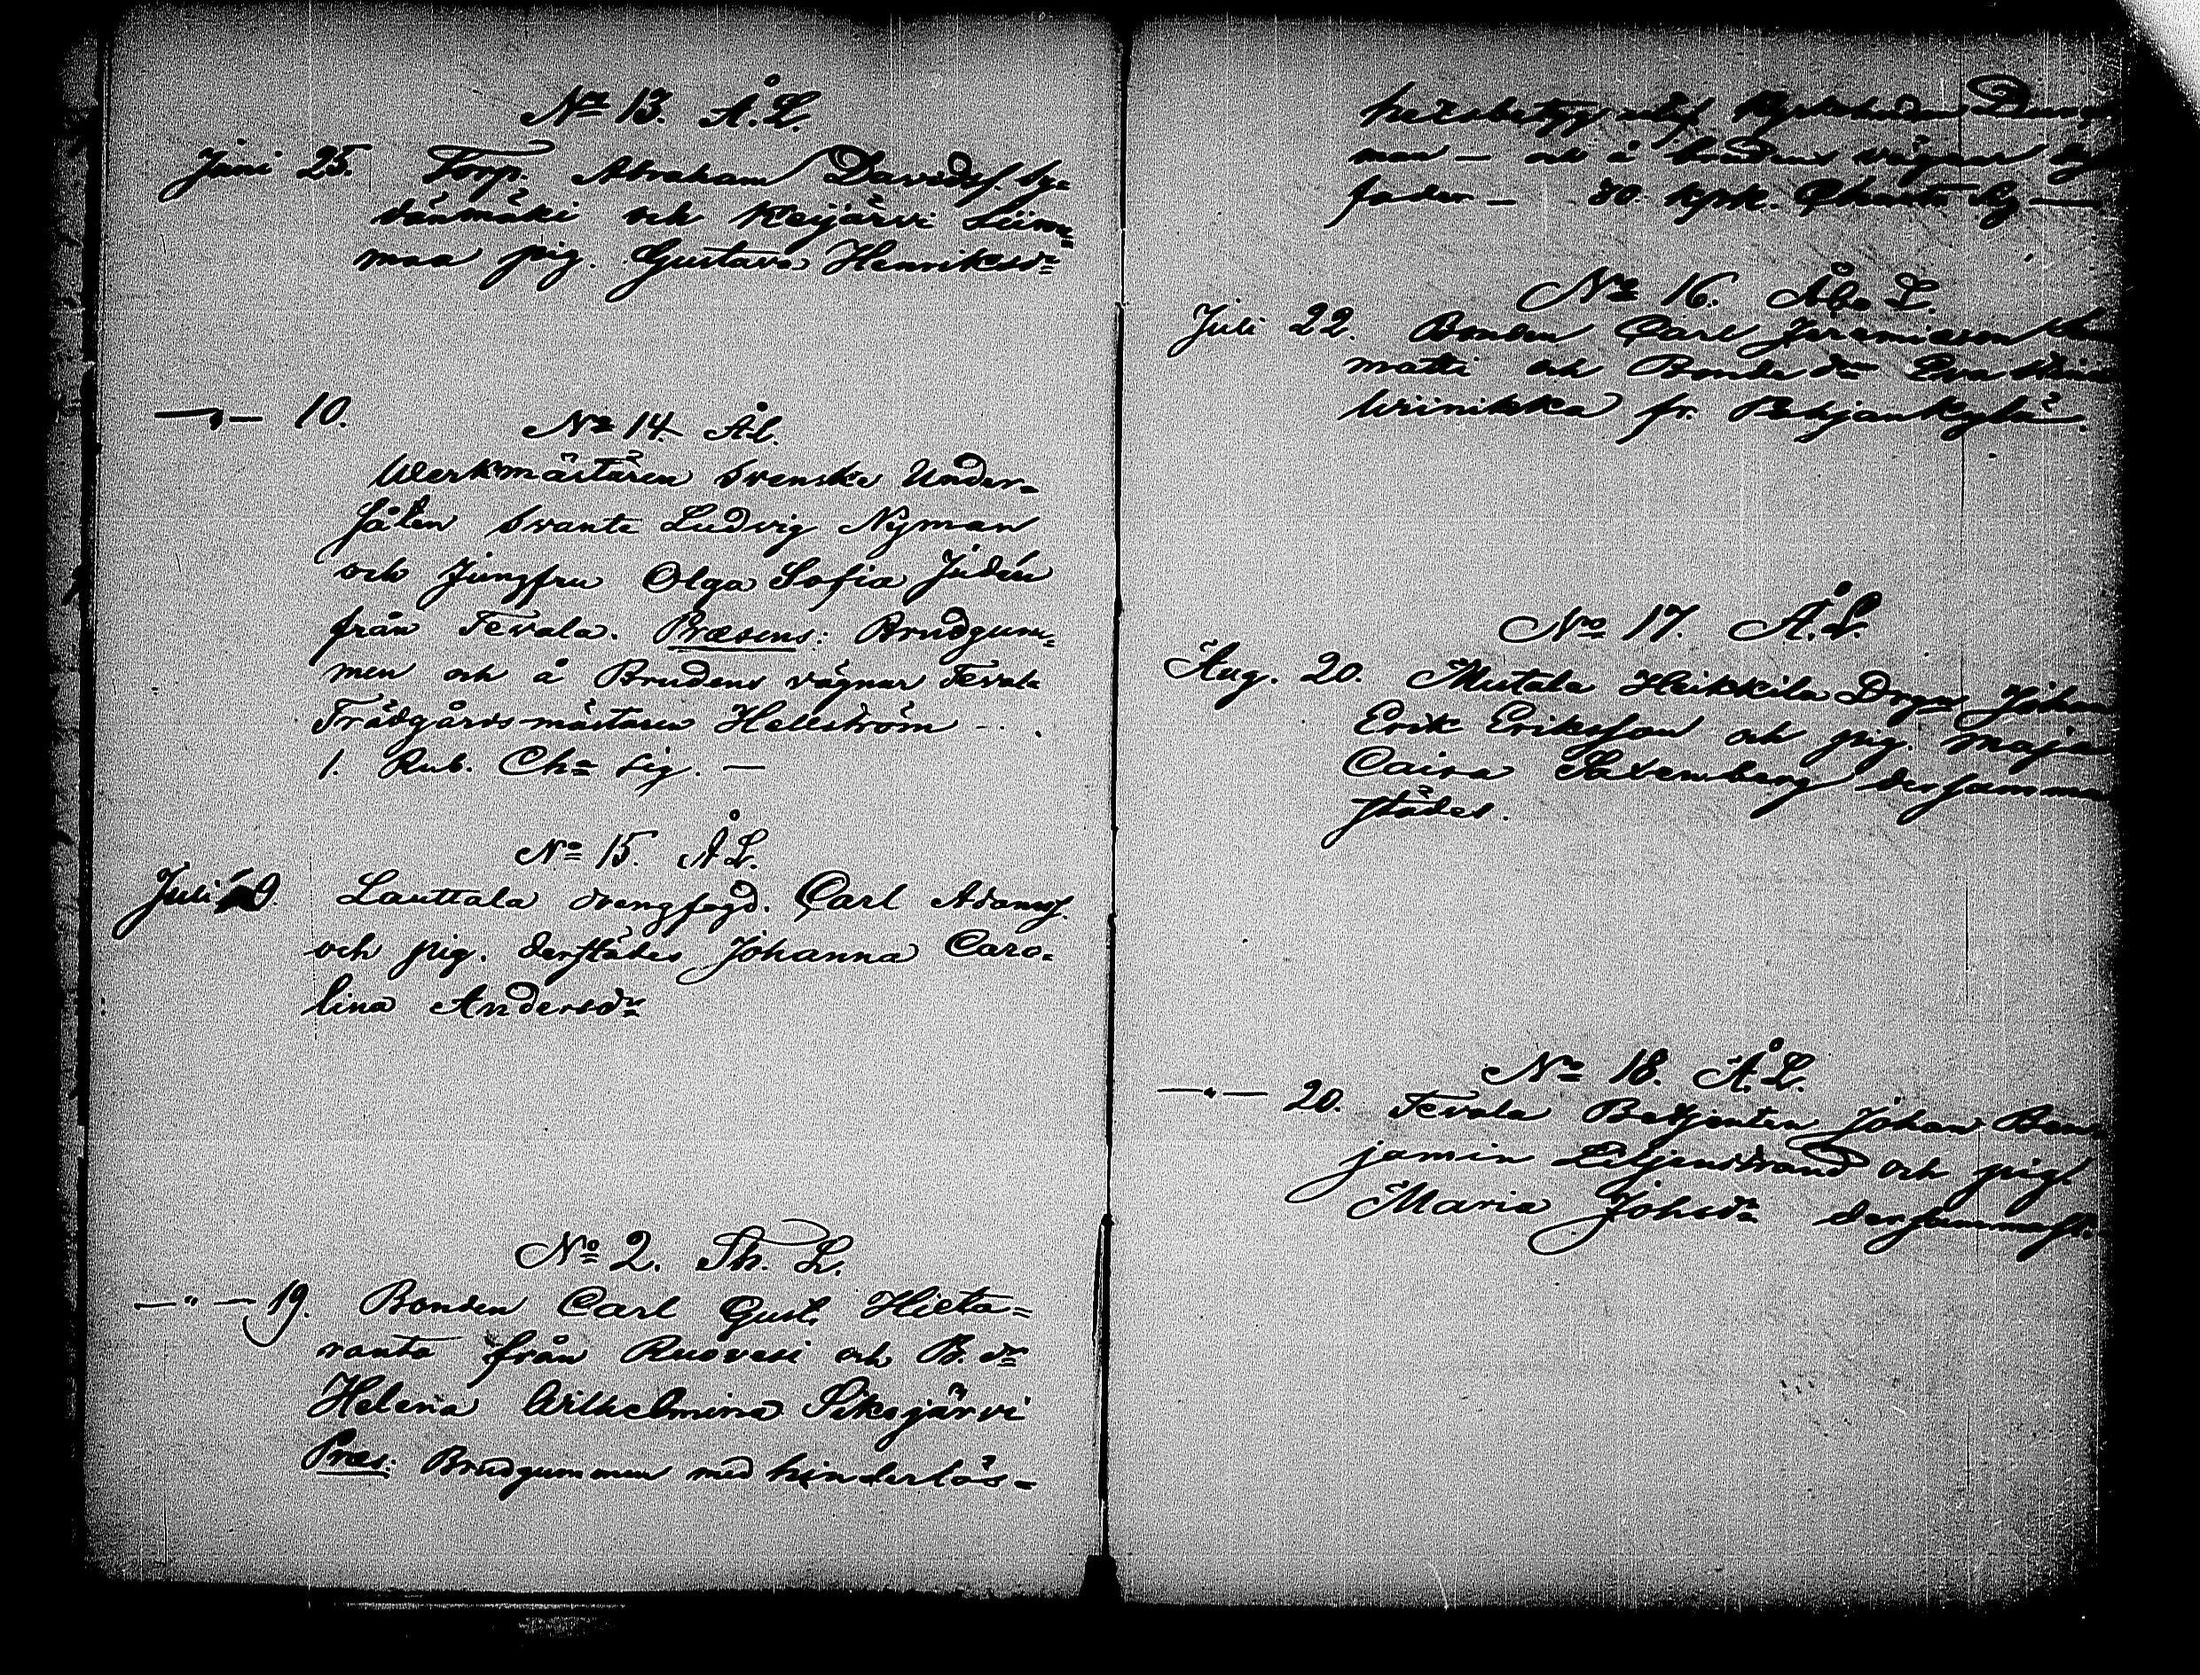 No 13. Å. L.
Juni 25. Torp. Abraham Davidss. Sy=
vänmäki och Keijärvi Liim=
maa pig. Gustava Henriksdr
—„— 10.
No 14. Å.L.
Werkmästaren Svenske Under=
såten Svante Ludvig Nyman
och Jungfru Olga Sofia Jidén
från Tevala. Præsens: Brudgum=
men och å Brudens vägnar Tevala
Trädgårdsmästaren Hellström —.
1. Rub. Cha sig. —
No 15. Å L.
Juli 9. Lauttala drengfogd. Carl Adamss.
och pig. derstädes Johanna Caro=
lina Andersdr
No 2. Th. L.
—„— 19. Bonden Carl Gust. Hieta=
ranta från Ruovesi och B. dr
Helena Wilhelmina Siksjärvi
Præs: Brudgummen med hinderlös=
hetsbetyg
man — och å brudens vägnar
fader — 80 kpk. Charta Sig —
No 16. Åbo L.
Juli 22. Bonden Carl Jeremiesson
matti och Bonde dr Eva
Wiinikka fr. Pohjankylä.
No 17. Å. L.
Aug. 20. Mutala Heikkila Drgn Johan
Erik Eriksson och pig. Maja
Caisa Saxenberg dersamma
städes.
No 18. Å. L.
—„— 20. Tevala Betjenten Johan Ben
jamin Liljenstrand och pig.
Maria Johsdr dersammast.